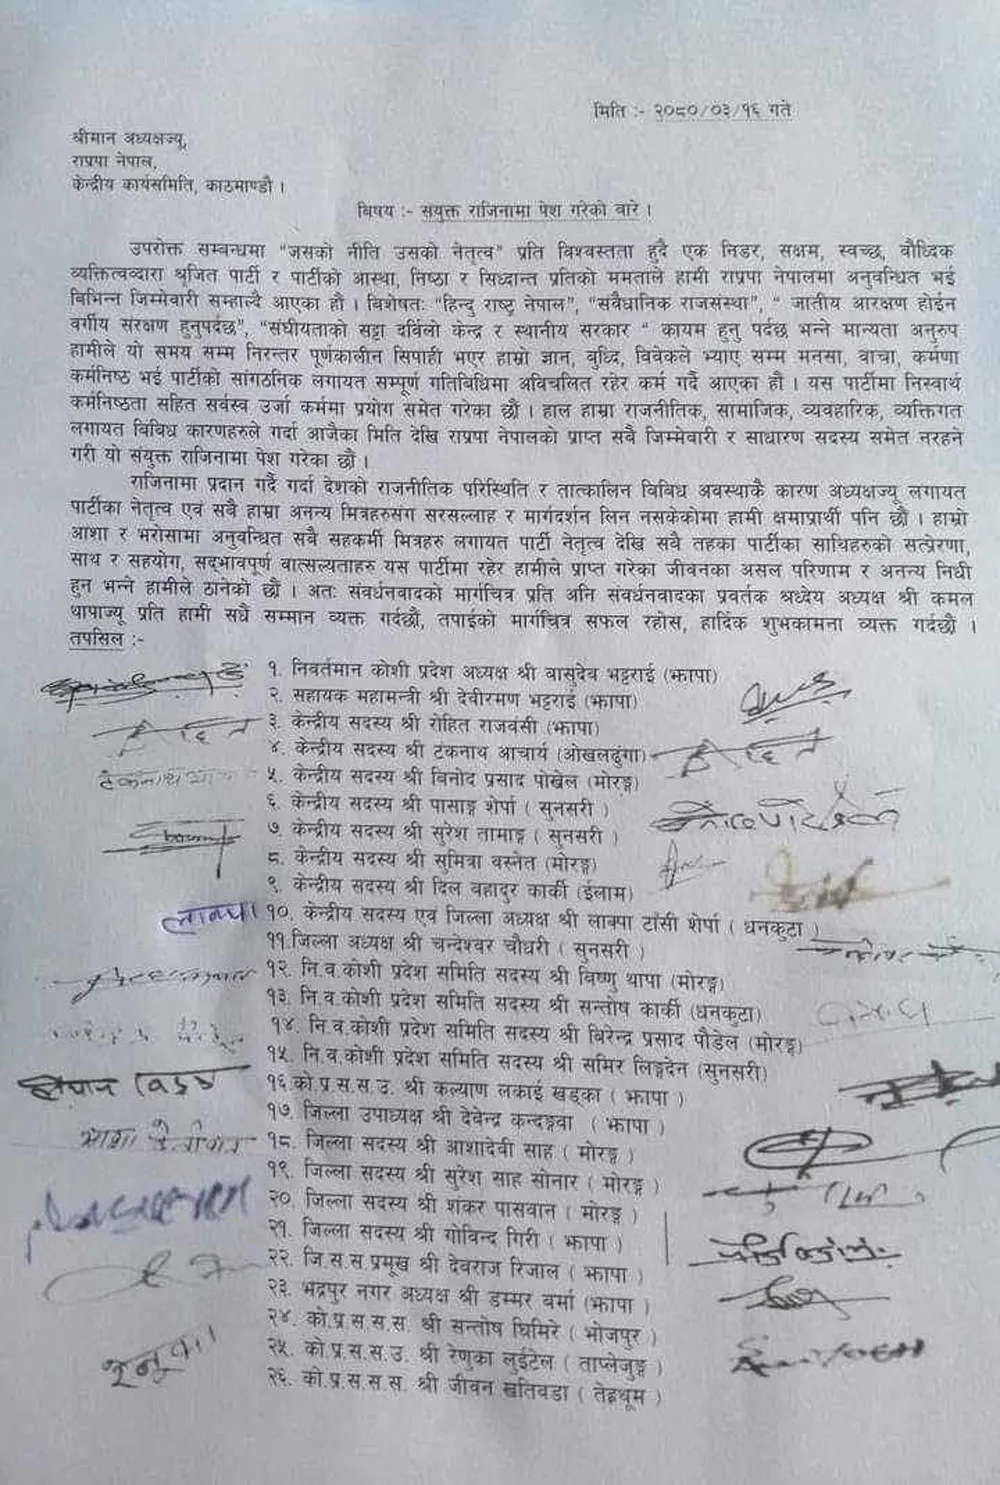 मिति :- २०८०/०३/१६ गते
श्रीमान अध्यक्षज्यू,
राप्रपा नेपाल,
केन्द्रीय कार्यसमिति, काठमाण्डौ ।
बिषय :- संयुक्त राजिनामा पेश गरेको बारे ।
उपरोक्त सम्बन्धमा “जसको नीति उसको नेतृत्व” प्रति विश्वस्तता हुदै एक निडर, सक्षम, स्वच्छ, वौध्दिक
व्यक्तित्वव्दारा श्रृजित पार्टी र पार्टीको आस्था, निष्ठा र सिध्दान्त प्रतिको ममताले हामी राप्रपा नेपालमा अनुवन्धित भई
बिभिन्न जिम्मेवारी सम्हाल्दै आएका हौ । विशेषतः “हिन्दु राष्ट्र नेपाल”, “सवैधानिक राजसंस्था”, “ जातीय आरक्षण होईन
वर्गीय संरक्षण हुनुपर्दछ”, “संघीयताको सट्टा दर्बिलो केन्द्र र स्थानीय सरकार “ कायम हुनु पर्दछ भन्ने मान्यता अनुरुप
हामीले यो समय सम्म निरन्तर पूर्णकालीन सिपाही भएर हाम्रो ज्ञान, बुध्दि, विवेकले भ्याए सम्म मनसा, वाचा, कर्मणा
कर्मनिष्ठ भई पार्टीको सांगठनिक लगायत सम्पूर्ण गतिविधिमा अविचलित रहेर कर्म गर्दै आएका हौ । यस पार्टीमा निस्वार्थ
कर्मनिष्ठता सहित सर्वस्व उर्जा कर्ममा प्रयोग समेत गरेका छौं । हाल हाम्रा राजनीतिक, सामाजिक, व्यवहारिक, व्यक्तिगत
लगायत विविध कारणहरुले गर्दा आजैका मिति देखि राप्रपा नेपालको प्राप्त सवै जिम्मेवारी र साधारण सदस्य समेत नरहने
गरी यो संयुक्त राजिनामा पेश गरेका छौं ।
राजिनामा प्रदान गर्दै गर्दा देशको राजनीतिक परिस्थिति र तात्कालिन बिबिध अवस्थाकै कारण अध्यक्षज्यू लगायत
पार्टीका नेतृत्व एवं सवै हाम्रा अनन्य मित्रहरुसंग सरसल्लाह र मार्गदर्शन लिन नसकेकोमा हामी क्षमाप्रार्थी पनि छौं । हाम्रो
आशा र भरोसामा अनुवन्धित सवै सहकर्मी मित्रहरु लगायत पार्टी नेतृत्व देखि सवै तहका पार्टीका साथिहरुको सत्प्रेरणा,
साथ र सहयोग, सद्भावपूर्ण वात्सल्यताहरु यस पार्टीमा रहेर हामीले प्राप्त गरेका जीवनका असल परिणाम र अनन्य निधी
हुन भन्ने हामीले ठानेको छौं । अतः संवर्धनवादको मार्गचित्र प्रति अनि संवर्धनवादका प्रवर्तक श्रध्देय अध्यक्ष श्री कमल
थापाज्यू प्रति हामी सधै सम्मान व्यक्त गर्दछौं, तपाईको मार्गचित्र सफल रहोस, हार्दिक शुभकामना व्यक्त गर्दछौं ।
तपसिल :-
१. निवर्तमान कोशी प्रदेश अध्यक्ष श्री वासुदेव भट्टराई (झापा)
२. सहायक महामन्त्री श्री देवीरमण भट्टराई (झापा)
३. केन्द्रीय सदस्य श्री रोहित राजवंसी (झापा)
४. केन्द्रीय सदस्य श्री टंकनाथ आचार्य (ओखलढुंगा)
५. केन्द्रीय सदस्य श्री बिनोद प्रसाद पोखेल (मोरङ्ग)
६. केन्द्रीय सदस्य श्री पासाङ्ग शेर्पा ( सुनसरी )
७. केन्द्रीय सदस्य श्री सुरेश तामाङ्ग ( सुनसरी )
८. केन्द्रीय सदस्य श्री सुमित्रा वस्नेत (मोरङ्ग)
९. केन्द्रीय सदस्य श्री दिल वहादुर कार्की (ईलाम)
१०. केन्द्रीय सदस्य एवं जिल्ला अध्यक्ष श्री लाक्पा टाँसी शेर्पा ( धनकुटा )
११.जिल्ला अध्यक्ष श्री चन्देश्वर चौधरी ( सुनसरी )
१२. नि.व.कोशी प्रदेश समिति सदस्य श्री विष्णु थापा (मोरङ्ग)
१३. नि.व.कोशी प्रदेश समिति सदस्य श्री सन्तोष कार्की (धनकुटा)
१४. नि.व.कोशी प्रदेश समिति सदस्य श्री बिरेन्द्र प्रसाद पौडेल (मोरङ्ग)
१५. नि.व.कोशी प्रदेश समिति सदस्य श्री समिर लिङ्गदेन (सुनसरी)
१६.को.प्र.स.स.उ. श्री कल्याण लकाई खड्का ( झापा )
१७. जिल्ला उपाध्यक्ष श्री देवेन्द्र कन्दङ्गवा ( झापा )
१८. जिल्ला सदस्य श्री आशादेवी साह ( मोरङ्ग )
१९. जिल्ला सदस्य श्री सुरेश साह सोनार ( मोरङ्ग )
२०. जिल्ला सदस्य श्री शंकर पासवान ( मोरङ्ग )
२१. जिल्ला सदस्य श्री गोविन्द गिरी ( झापा )
२२. जि.स.स.प्रमूख श्री देवराज रिजाल ( झापा )
२३. भद्रपुर नगर अध्यक्ष श्री डम्मर बर्मा (झापा )
२४. को.प्र.स.स.स. श्री सन्तोष घिमिरे ( भोजपुर )
२५. को.प्र.स.स.उ. श्री रेणुका लुईटेल ( ताप्लेजुङ्ग )
२६. को.प्र.स.स.स. श्री जीवन खतिवडा ( तेह्रथूम )